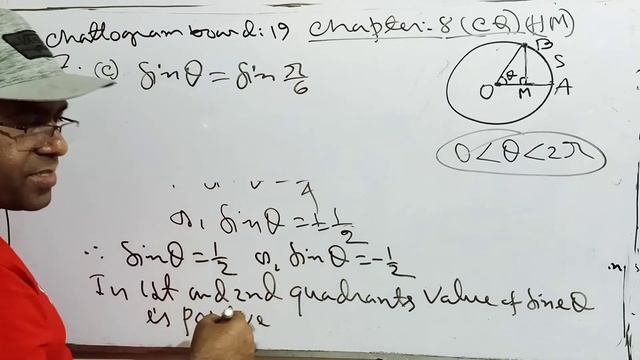 Chattogram board: 19 chapter: 8 (CQ) (HM)
(c) sinθ = sin π/6
B
S
θ
O M A
0<θ<2π
or, sinθ = ± 1/2
∴ sinθ = 1/2 or, sinθ = -1/2
In 1st and 2nd quadrants value of sineθ
is